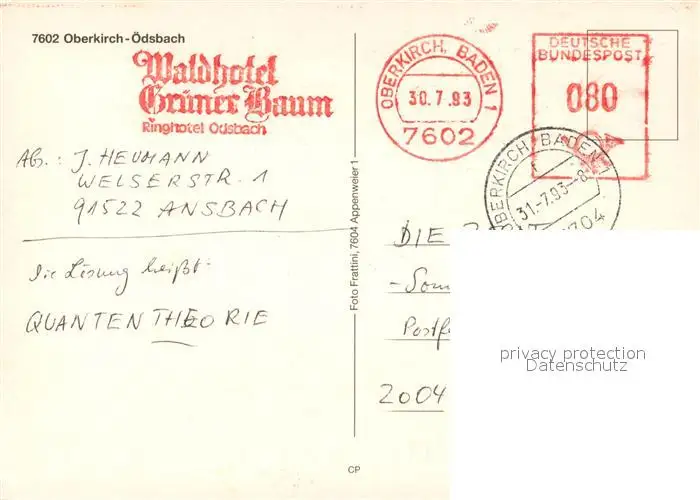 7602 Oberkirch-Ödsbach
Waldhotel
Grüner Baum
Ringhotel Ödsbach
OBERKIRCH, BADEN 1
30.7.93
7602
DEUTSCHE
BUNDESPOST
080
OBERKIRCH, BADEN 1
31.-7.93--8
7704
Abs.: J. HEUMANN
WELSERSTR. 1
91522 ANSBACH
Die Lösung heißt:
QUANTENTHEORIE
Foto Frattini, 7604 Appenweier 1
DIE
-Som
Postf
2004
privacy protection
Datenschutz
CP